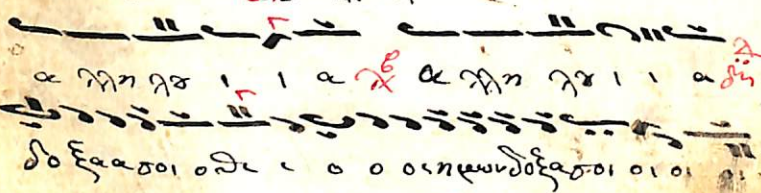 α λλη λȣ ι ι α α λλη λȣ ι ι α
δοξα α σοι ο θε ε ο ο ο ς η μων δοξα σοι οι οι